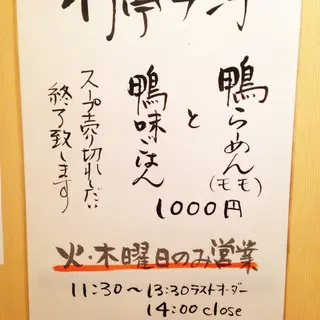 鴨らーめん
(モモ)
と
鴨味ごはん
1000円
スープ売り切れしだい
終了致します
火・木曜日のみ営業
11:30～13:30ラストオーダー
14:00 close